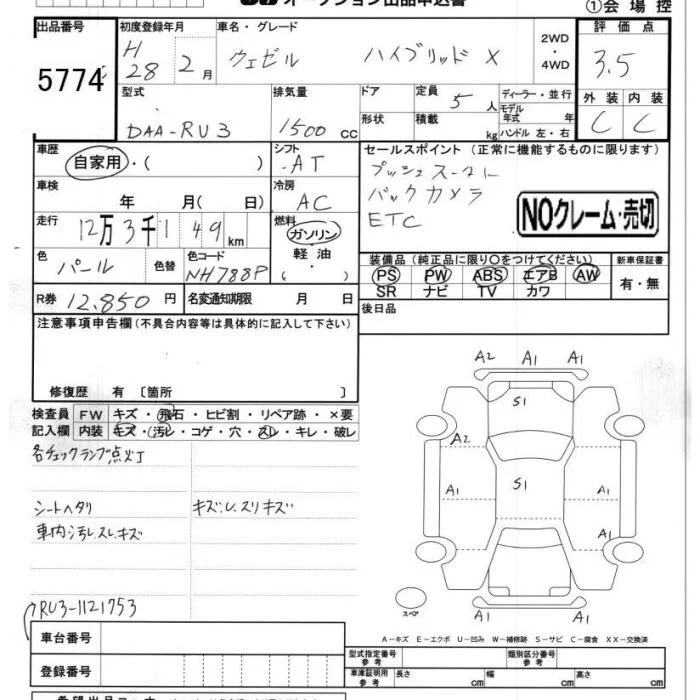 オークション出品申込書
①会場控
出品番号
5774
初度登録年月
H28 2月
車名・グレード
ヴェゼル ハイブリッド X
2WD・4WD
評価点
3.5
外装 内装
C C
型式
DAA-RU3
排気量
1500 CC
ドア
形状
定員 5人
積載 kg
ディーラー・並行
モデル年式 年
ハンドル 左・右
車歴
自家用・( )
シフト
AT
セールスポイント (正常に機能するものに限ります)
プッシュスタート
バックカメラ
ETC
NOクレーム・売切
車検
年 月( 日)
冷房
AC
走行
12万3千149km
燃料
ガソリン・軽油・( )
色
パール
色替
色コード
NH788P
装備品 (純正品に限り○をつけてください)
PS PW ABS エアB AW
SR ナビ TV カワ
新車保証書
有・無
R券 12,850円
名変通知期限 月 日
後日品
注意事項申告欄 (不具合内容等は具体的に記入して下さい)
修復歴 有 〔箇所 〕
検査員記入欄
FW キズ・飛石・ヒビ割・リペア跡・×要
内装 キズ・汚レ・コゲ・穴・スレ・キレ・破レ
各チェックランプ点灯
シートヘタリ
キズ・U.スリキズ
車内汚レ.スレ.キズ
RU3-1121753
A2 A1 A1
S1
A2
A1 S1 A1
A1
A1 A1
スペア
A-キズ E-エクボ U-凹み W-補修跡 S-サビ C-腐食 XX-交換済
車台番号
登録番号
型式指定番号 参考
類別区分番号 参考
車庫証明用 参考 長さ cm 幅 cm 高さ cm